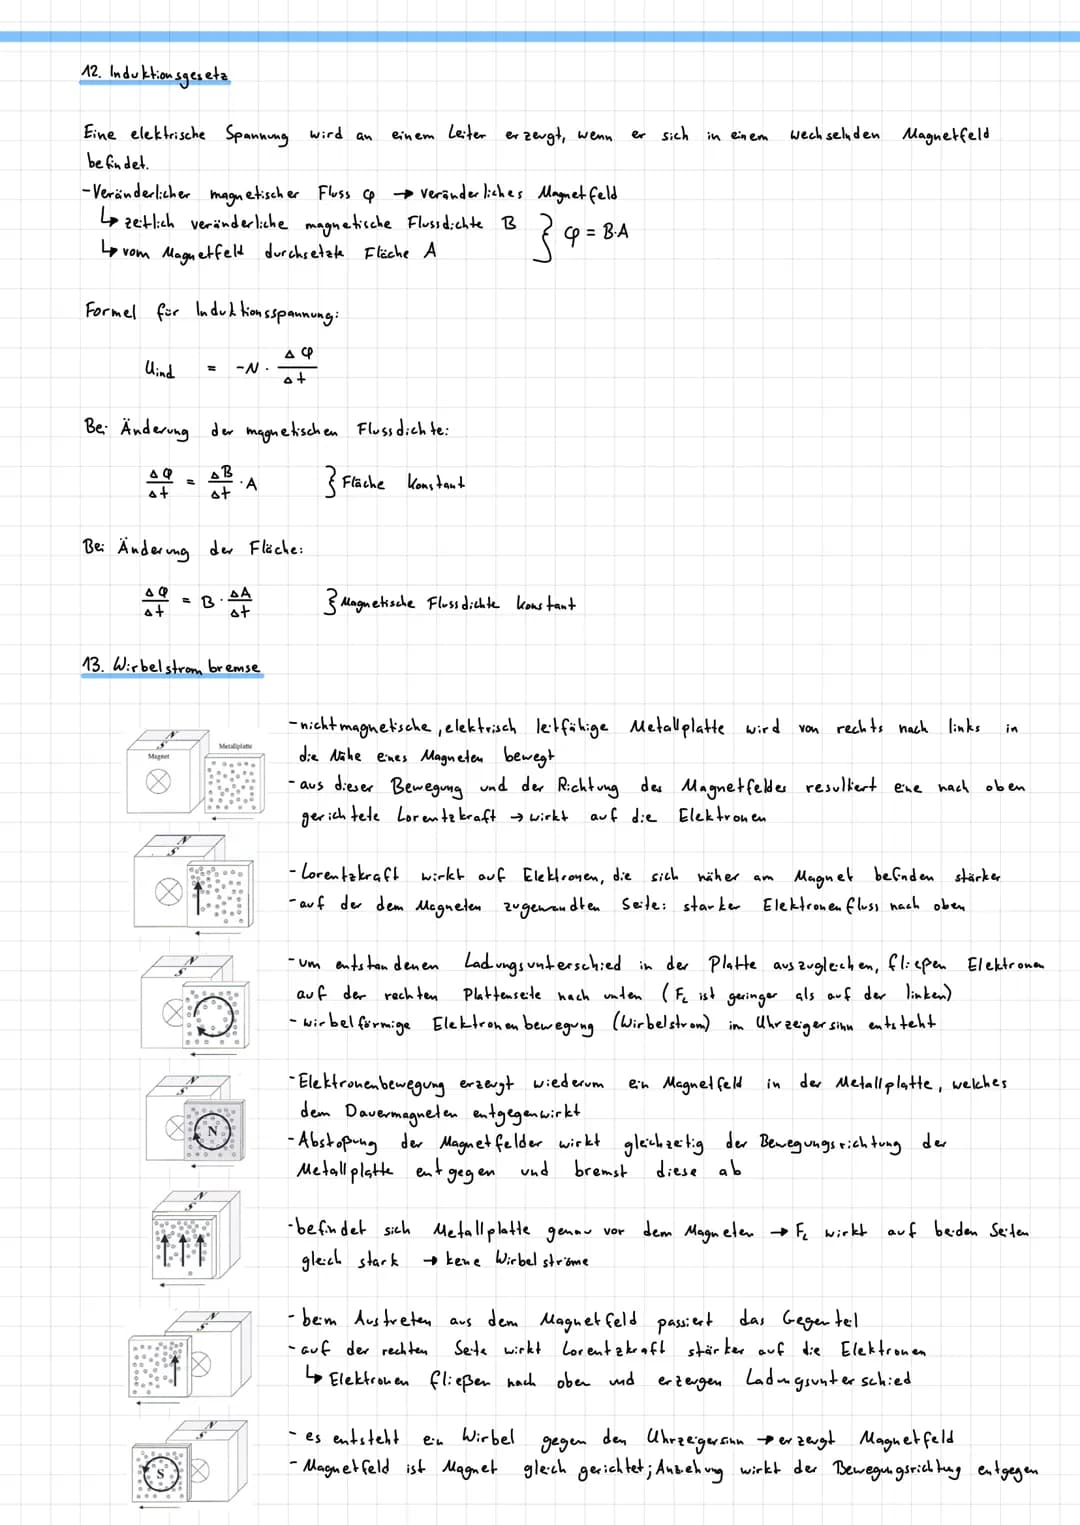 12. Induktionsgesetz
Eine elektrische Spannung wird an einem Leiter erzeugt, wenn er sich in einem wechselnden Magnetfeld
befindet.
-Veränderlicher magnetischer Fluss φ → veränderliches Magnetfeld
↳ zeitlich veränderliche magnetische Flussdichte B } φ = B·A
↳ vom Magnetfeld durchsetzte Fläche A
Formel für Induktionsspannung:
Uind = -N · Δφ/Δt
Bei Änderung der magnetischen Flussdichte:
Δφ/Δt = ΔB/Δt · A } Fläche konstant
Bei Änderung der Fläche:
Δφ/Δt = B · ΔA/Δt } Magnetische Flussdichte konstant
13. Wirbelstrombremse
N
S
Magnet
Metallplatte
-nichtmagnetische, elektrisch leitfähige Metallplatte wird von rechts nach links in
die Nähe eines Magneten bewegt
- aus dieser Bewegung und der Richtung des Magnetfeldes resultiert eine nach oben
gerichtete Lorentzkraft → wirkt auf die Elektronen
N
S
- Lorentzkraft wirkt auf Elektronen, die sich näher am Magnet befinden stärker
- auf der dem Magneten zugewandten Seite: starker Elektronenfluss nach oben
N
S
- um entstandenen Ladungsunterschied in der Platte auszugleichen, fließen Elektronen
auf der rechten Plattenseite nach unten (FL ist geringer als auf der linken)
- wirbelförmige Elektronenbewegung (Wirbelstrom) im Uhrzeigersinn entsteht
N
S
N
- Elektronenbewegung erzeugt wiederum ein Magnetfeld in der Metallplatte, welches
dem Dauermagneten entgegenwirkt
- Abstoßung der Magnetfelder wirkt gleichzeitig der Bewegungsrichtung der
Metallplatte entgegen und bremst diese ab
N
S
-befindet sich Metallplatte genau vor dem Magneten → FL wirkt auf beiden Seiten
gleich stark → keine Wirbelströme
N
S
- beim Austreten aus dem Magnetfeld passiert das Gegenteil
- auf der rechten Seite wirkt Lorentzkraft stärker auf die Elektronen
↳ Elektronen fließen nach oben und erzeugen Ladungsunterschied
N
S
S
- es entsteht ein Wirbel gegen den Uhrzeigersinn → erzeugt Magnetfeld
- Magnetfeld ist Magnet gleich gerichtet; Anziehung wirkt der Bewegungsrichtung entgegen